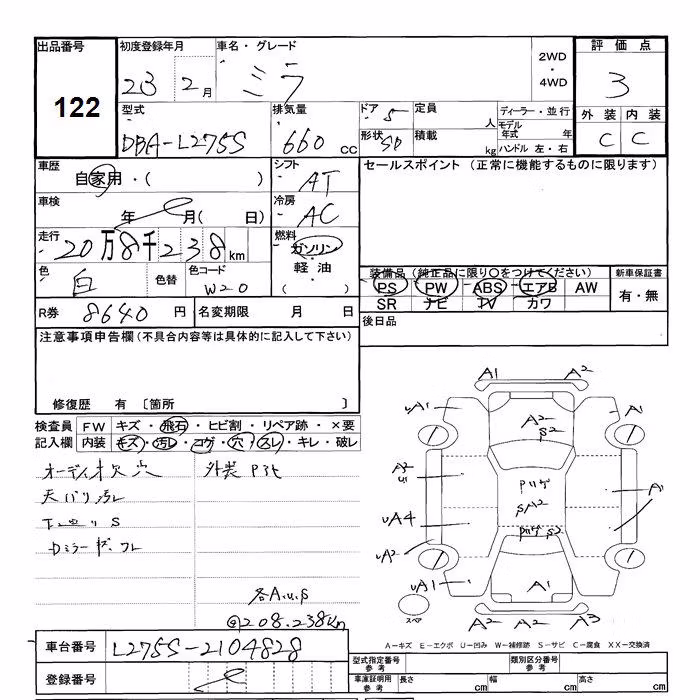 出品番号
122
初度登録年月
23 2月
車名・グレード
ミラ
2WD
・
4WD
評価点
3
型式
DBA-L275S
排気量
660 cc
ドア 5
形状 5D
定員
人
積載
kg
ディーラー・並行
モデル年式 年
ハンドル 左・右
外装 内装
C C
車歴
自家用・( )
シフト
AT
セールスポイント (正常に機能するものに限ります)
車検
年 月( 日)
冷房
AC
走行
20万8千238km
燃料
ガソリン
・
軽油
( )
色
白
色替
色コード
W20
装備品(純正品に限り○をつけてください)
PS PW ABS エアB AW
SR ナビ TV カワ
新車保証書
有・無
R券 8640 円
名変期限 月 日
後日品
注意事項申告欄(不具合内容等は具体的に記入して下さい)
修復歴 有 〔箇所 〕
検査員記入欄
FW キズ・飛石・ヒビ割・リペア跡・×要
内装 キズ・汚レ・コゲ・穴・スレ・キレ・破レ
オーディオ欠 穴
外装
天バリ汚レ
Dミラーキズ、ワレ
各A.U.S
@208.238km
A1 A2
UA1 A1
A2
S2
A2
U1
Pハゲ
SA2
A1
UA4
UA2
Pハゲ S2
UA1
A1
スペア
A2 A2 A3
A-キズ E-エクボ U-凹み W-補修跡 S-サビ C-腐食 XX-交換済
車台番号
L275S-2104828
登録番号
型式指定番号
参考
類別区分番号
参考
車庫証明用
参考
長さ cm
幅 cm
高さ cm